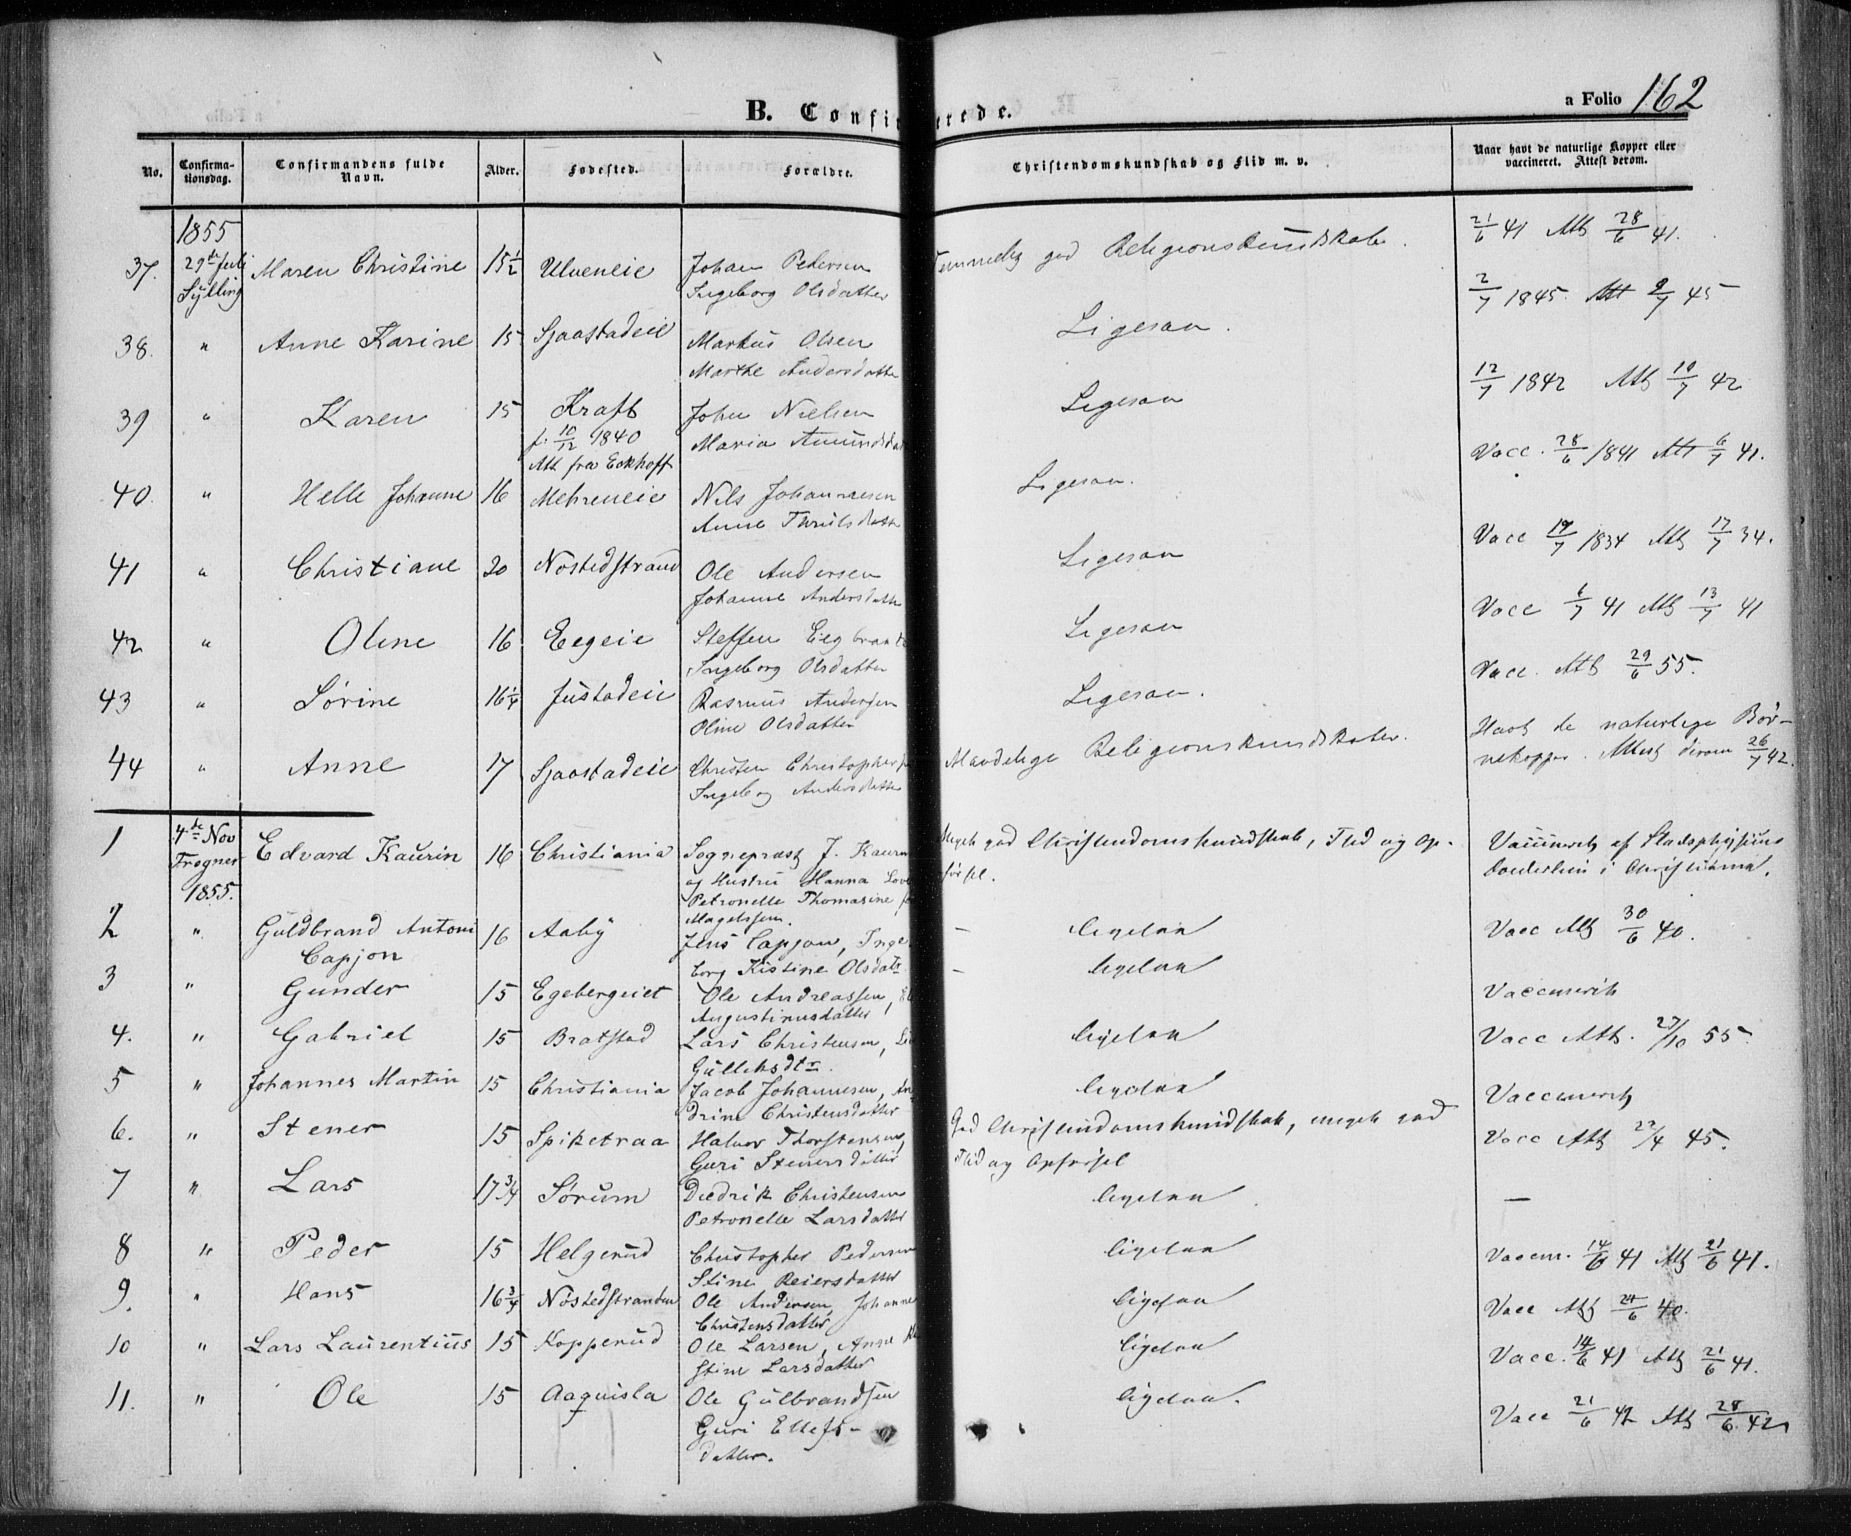 B. Confirmerede.
a Folio 162
No. Confirmationsdag. Confirmandens fulde Navn. Alder. Fødested. Forældre. Christendomskundskab og Flid m. v. Naar havt de naturlige Kopper eller vaccineret. Attest derom.
1855
37. 29de Juli Sylling Maren Christine 15 1/2 Ulveneie Johan Pedersen Ingeborg Olsdatter Temmelig god Religionskundskab. 21/6 41 Att 28/6 41.
38. " Anne Karine 15 Sjaastadeie Markus Olsen Marthe Andersdatter Ligesaa. 2/7 1845. Att 9/7 45
39 " Karen 15 Kraft f. 10/12 1840 Att fra Eckhoff John Nielsen Maria Amunds Ligesaa 12/7 1842 Att 10/7 42
40. " Helle Johanne 16 Mehreneie Nils Johannesen Anne Ligesaa. Vacc. 28/6 1841 Att 6/7 41.
41 " Christiane 20 Nøstedstrand Ole Andersen Johanne Andersdatter Ligesaa Vacc 19/7 1834 Att 17/7 34.
42 " Oline 16 Eegeie Steffen Ingeborg Olsdatter Ligesaa Vacc 6/7 41 Att 13/7 41
43 " Sørine 16 1/4 Justadeie Rasmus Andersen Oline Olsdatter Ligesaa. Vacc. Att 29/6 55.
44 " Anne 17 Sjaastadeie Christen Christophersen Ingeborg Andersdatter Maadelige Religionskundskaber. Havt de naturlige Børnekopper. Attest derom 26/7 42.
1 4de Nov Frogner 1855. Edvard Kaurin 16 Christiania Sognepræst J. Kaurin og Hustru Hanna Petronelle Thomasine Magelssen. Meget god Christendomskundskab, Flid og Opførsel. Vaccineret af Stadsphysicus i Christiania.
2 " Guldbrand Antoni Capjon 16 Aaby Jens Capjon, Ingeborg Kistine Olsdatr - ligesaa Vacc Att 30/6 40.
3 " Gunder 15 Egebergeiet Ole Andreassen, Augustinusdatter - ligesaa Vaccinerit
4. " Gabriel 15 Bratstad Lars Christensen, ligesaa Vacc Att. 27/10 55.
5 " Johannes Martin 15 Christiania Jacob Johannesen, Andrine Christensdatter ligesaa Vaccineret
6. " Stener 15 Spiketraa Halvor Thorstensen, Guri Stenersdatter God Christendomskundskab, meget god Flid og Opførsel Vacc Att 27/4 45.
7 " Lars 17 3/4 Sørum Diedrik Christensen Petronelle Larsdatter ligesaa -
8 " Peder 15 Helgerud Christopher Pedersen Stine Reiersdatter ligesaa Vaccin. 14/6 41 Att 21/6 41.
9. " Hans 16 3/4 Nøstedstranden Ole Andersen, Johanne Christensdatter ligesaa Vacc Att 24/6 40.
10 " Lars Laurentius 15 Kopperud Ole Larsen, Anne Stine Larsdatter ligesaa Vacc. 14/6 41 Att 21/6 41.
11. " Ole 15 Aaquisla Ole Gulbrandsen Guri Ellefsdatter. ligesaa. Vacc 21/6 42 Att 28/6 42